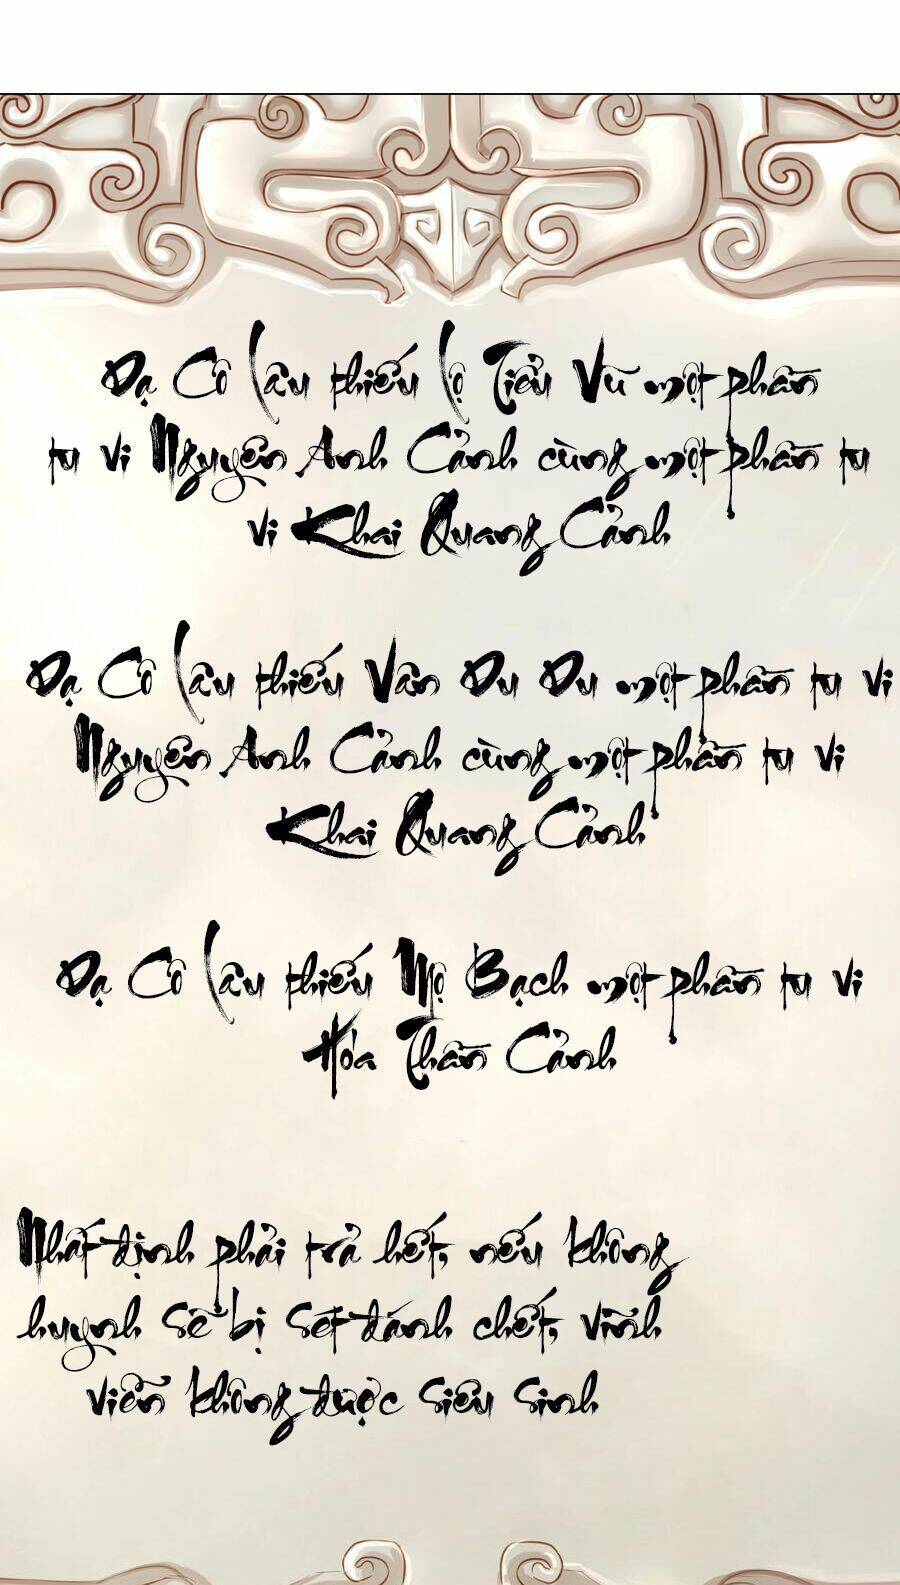 Dạ Cô Lâu thiếu Lọ Tiểu Vũ một phần
tu vi Nguyên Anh Cảnh cùng một phần tu
vi Khai Quang Cảnh
Dạ Cô Lâu thiếu Vân Du Du một phần tu vi
Nguyên Anh Cảnh cùng một phần tu vi
Khai Quang Cảnh
Dạ Cô Lâu thiếu Mộ Bạch một phần tu vi
Hóa Thần Cảnh
Nhất định phải trả hết, nếu không
huynh sẽ bị sét đánh chết, vĩnh
viễn không được siêu sinh